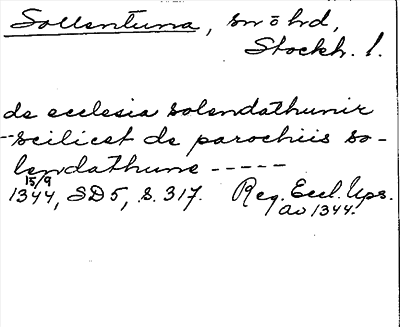 Sollentuna, sn o hd,
Stockh. l.
de ecclesia solendathunir
--scilicet de parochiis so-
lendathune -----
15/9
1344, SD 5, s. 317. Reg. Eccl. Ups.
av 1344.